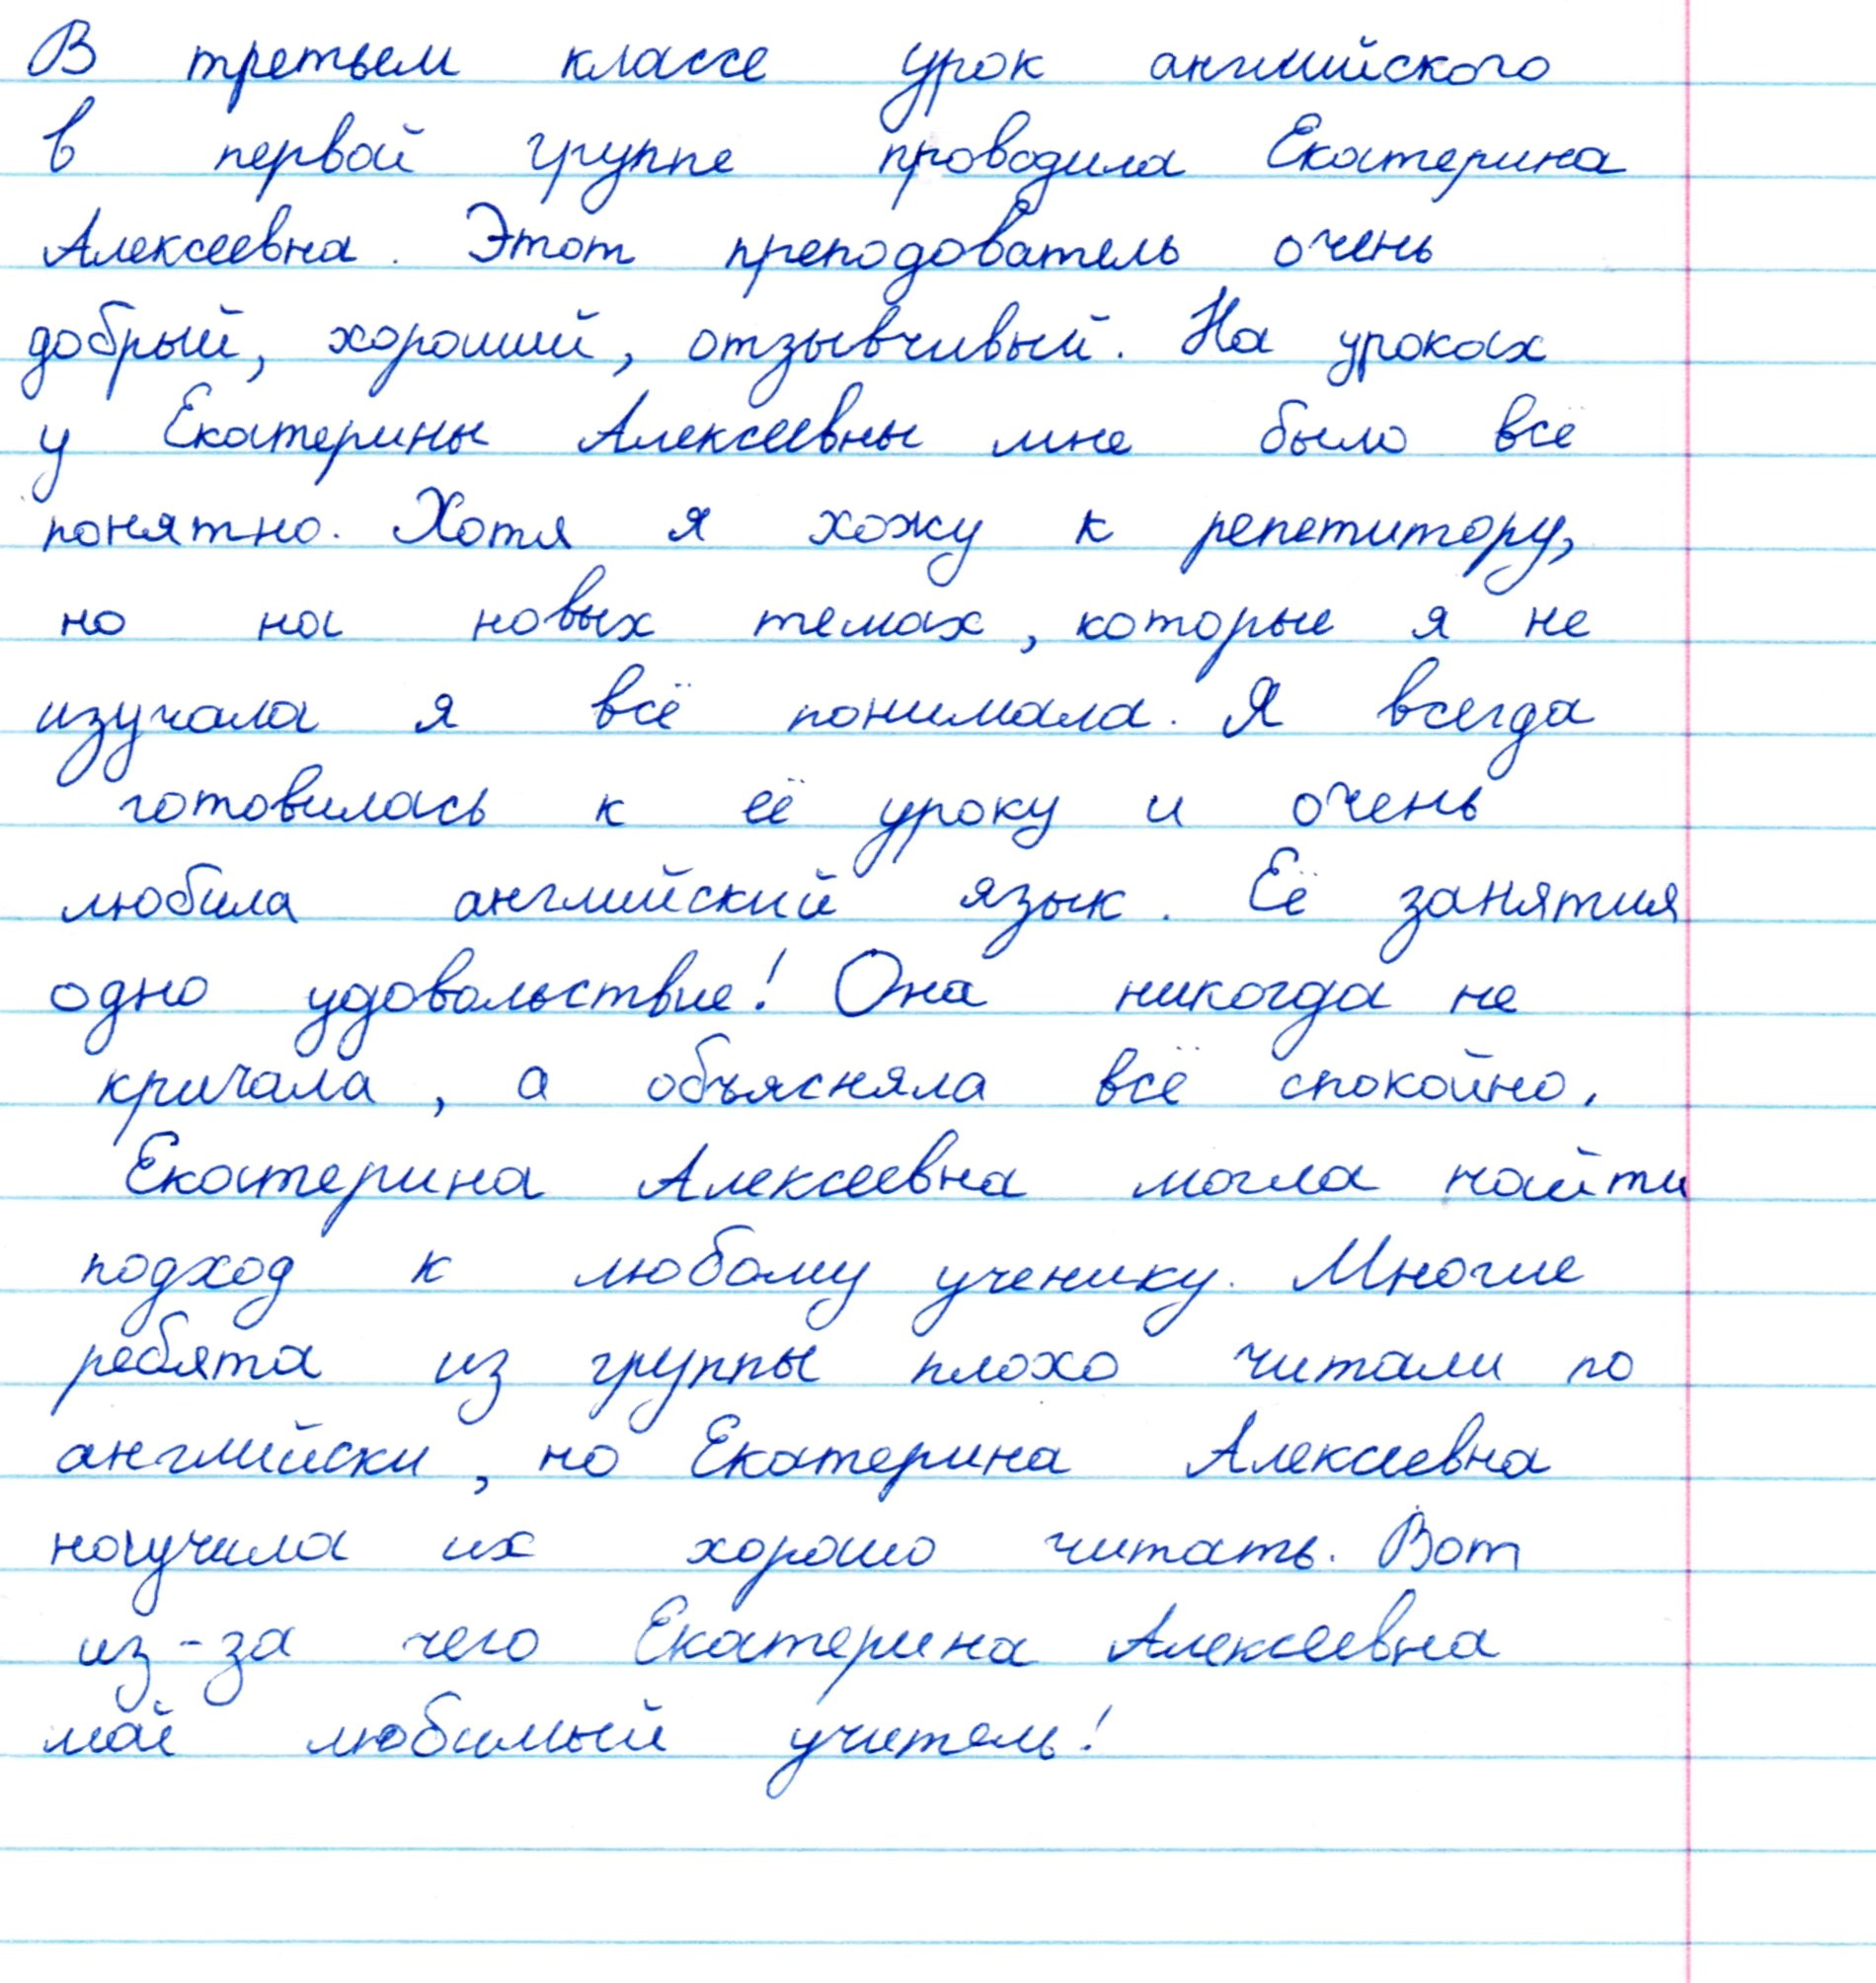 В третьем классе урок английского
в первой группе проводила Екатерина
Алексеевна. Этот преподователь очень
добрый, хороший, отзывчивый. На уроках
у Екатерины Алексеевны мне было всё
понятно. Хотя я хожу к репетитору,
но на новых темах, которые я не
изучала я всё понимала. Я всегда
готовилась к её уроку и очень
любила английский язык. Её занятия
одно удовольствие! Она никогда не
кричала, а объясняла всё спокойно.
Екатерина Алексеевна могла найти
подход к любому ученику. Многие
ребята из группы плохо читали по
английски, но Екатерина Алексеевна
научила их хорошо читать. Вот
из-за чего Екатерина Алексеевна
мой любимый учитель!